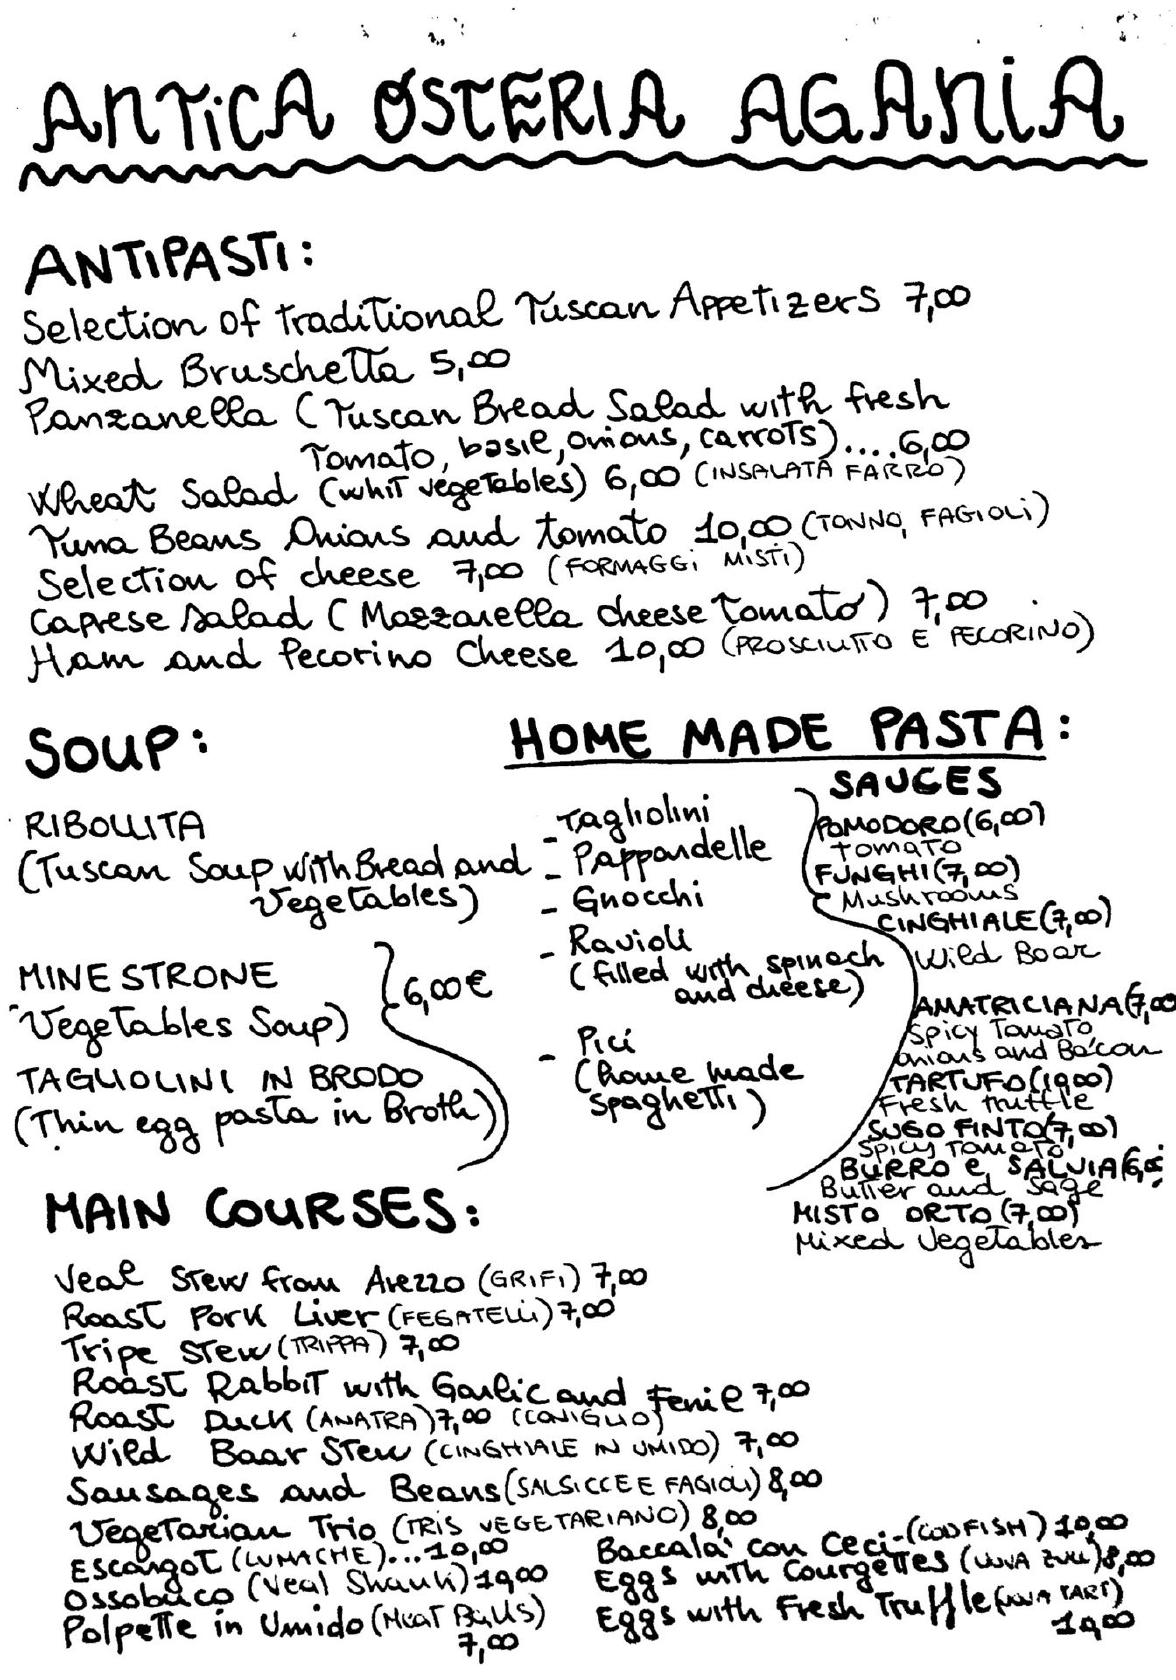 ANTICA OSTERIA AGANIA
ANTIPASTI:
Selection of traditional Tuscan Appetizers 7,00
Mixed Bruschetta 5,00
Panzanella (Tuscan Bread Salad with fresh
Tomato, basil, onions, carrots)....6,00
Wheat Salad (whit vegetables) 6,00 (INSALATA FARRO)
Tuna Beans Onions and tomato 10,00 (TONNO, FAGIOLI)
Selection of cheese 7,00 (FORMAGGI MISTI)
Caprese Salad (Mozzarella cheese tomato) 7,00
Ham and Pecorino Cheese 10,00 (PROSCIUTTO E PECORINO)
SOUP:
RIBOLLITA
(Tuscan Soup with Bread and
Vegetables)
MINESTRONE
Vegetables Soup)
6,00€
TAGLIOLINI IN BRODO
(Thin egg pasta in Broth)
HOME MADE PASTA:
- Tagliolini
- Pappardelle
- Gnocchi
- Ravioli
(filled with spinach
and cheese)
- Pici
(home made
spaghetti)
SAUCES
POMODORO (6,00)
tomato
FUNGHI (7,00)
Mushrooms
CINGHIALE (7,00)
Wild Boar
AMATRICIANA (7,00
Spicy Tomato
onions and Bacon
TARTUFO (10,00)
Fresh truffle
SUGO FINTO (7,00)
Spicy Tomato
BURRO e SALVIA (6,00
Butter and Sage
MISTO ORTO (7,00)
Mixed Vegetables
MAIN COURSES:
Veal Stew from Arezzo (GRIFI) 7,00
Roast Pork Liver (FEGATELLI) 7,00
Tripe Stew (TRIPPA) 7,00
Roast Rabbit with Garlic and Fenil 7,00
(CONIGLIO)
Roast Duck (ANATRA) 7,00
Wild Boar Stew (CINGHIALE IN UMIDO) 7,00
Sausages and Beans (SALSICCE E FAGIOLI) 8,00
Vegetarian Trio (TRIS VEGETARIANO) 8,00
Escargot (LUMACHE)...10,00
Ossobuco (Veal Shank) 10,00
Polpette in Umido (Meat Balls)
7,00
Baccala' con Ceci-(CODFISH) 10,00
Eggs with Courgettes (UOVA ZUCC) 8,00
Eggs with Fresh Truffle (UOVA TART)
10,00